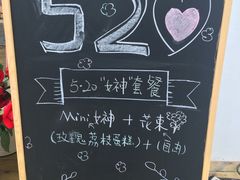 520
5·20"女神"套餐
Mini女神 + 花束
(玫瑰荔枝蛋糕) + (自由)